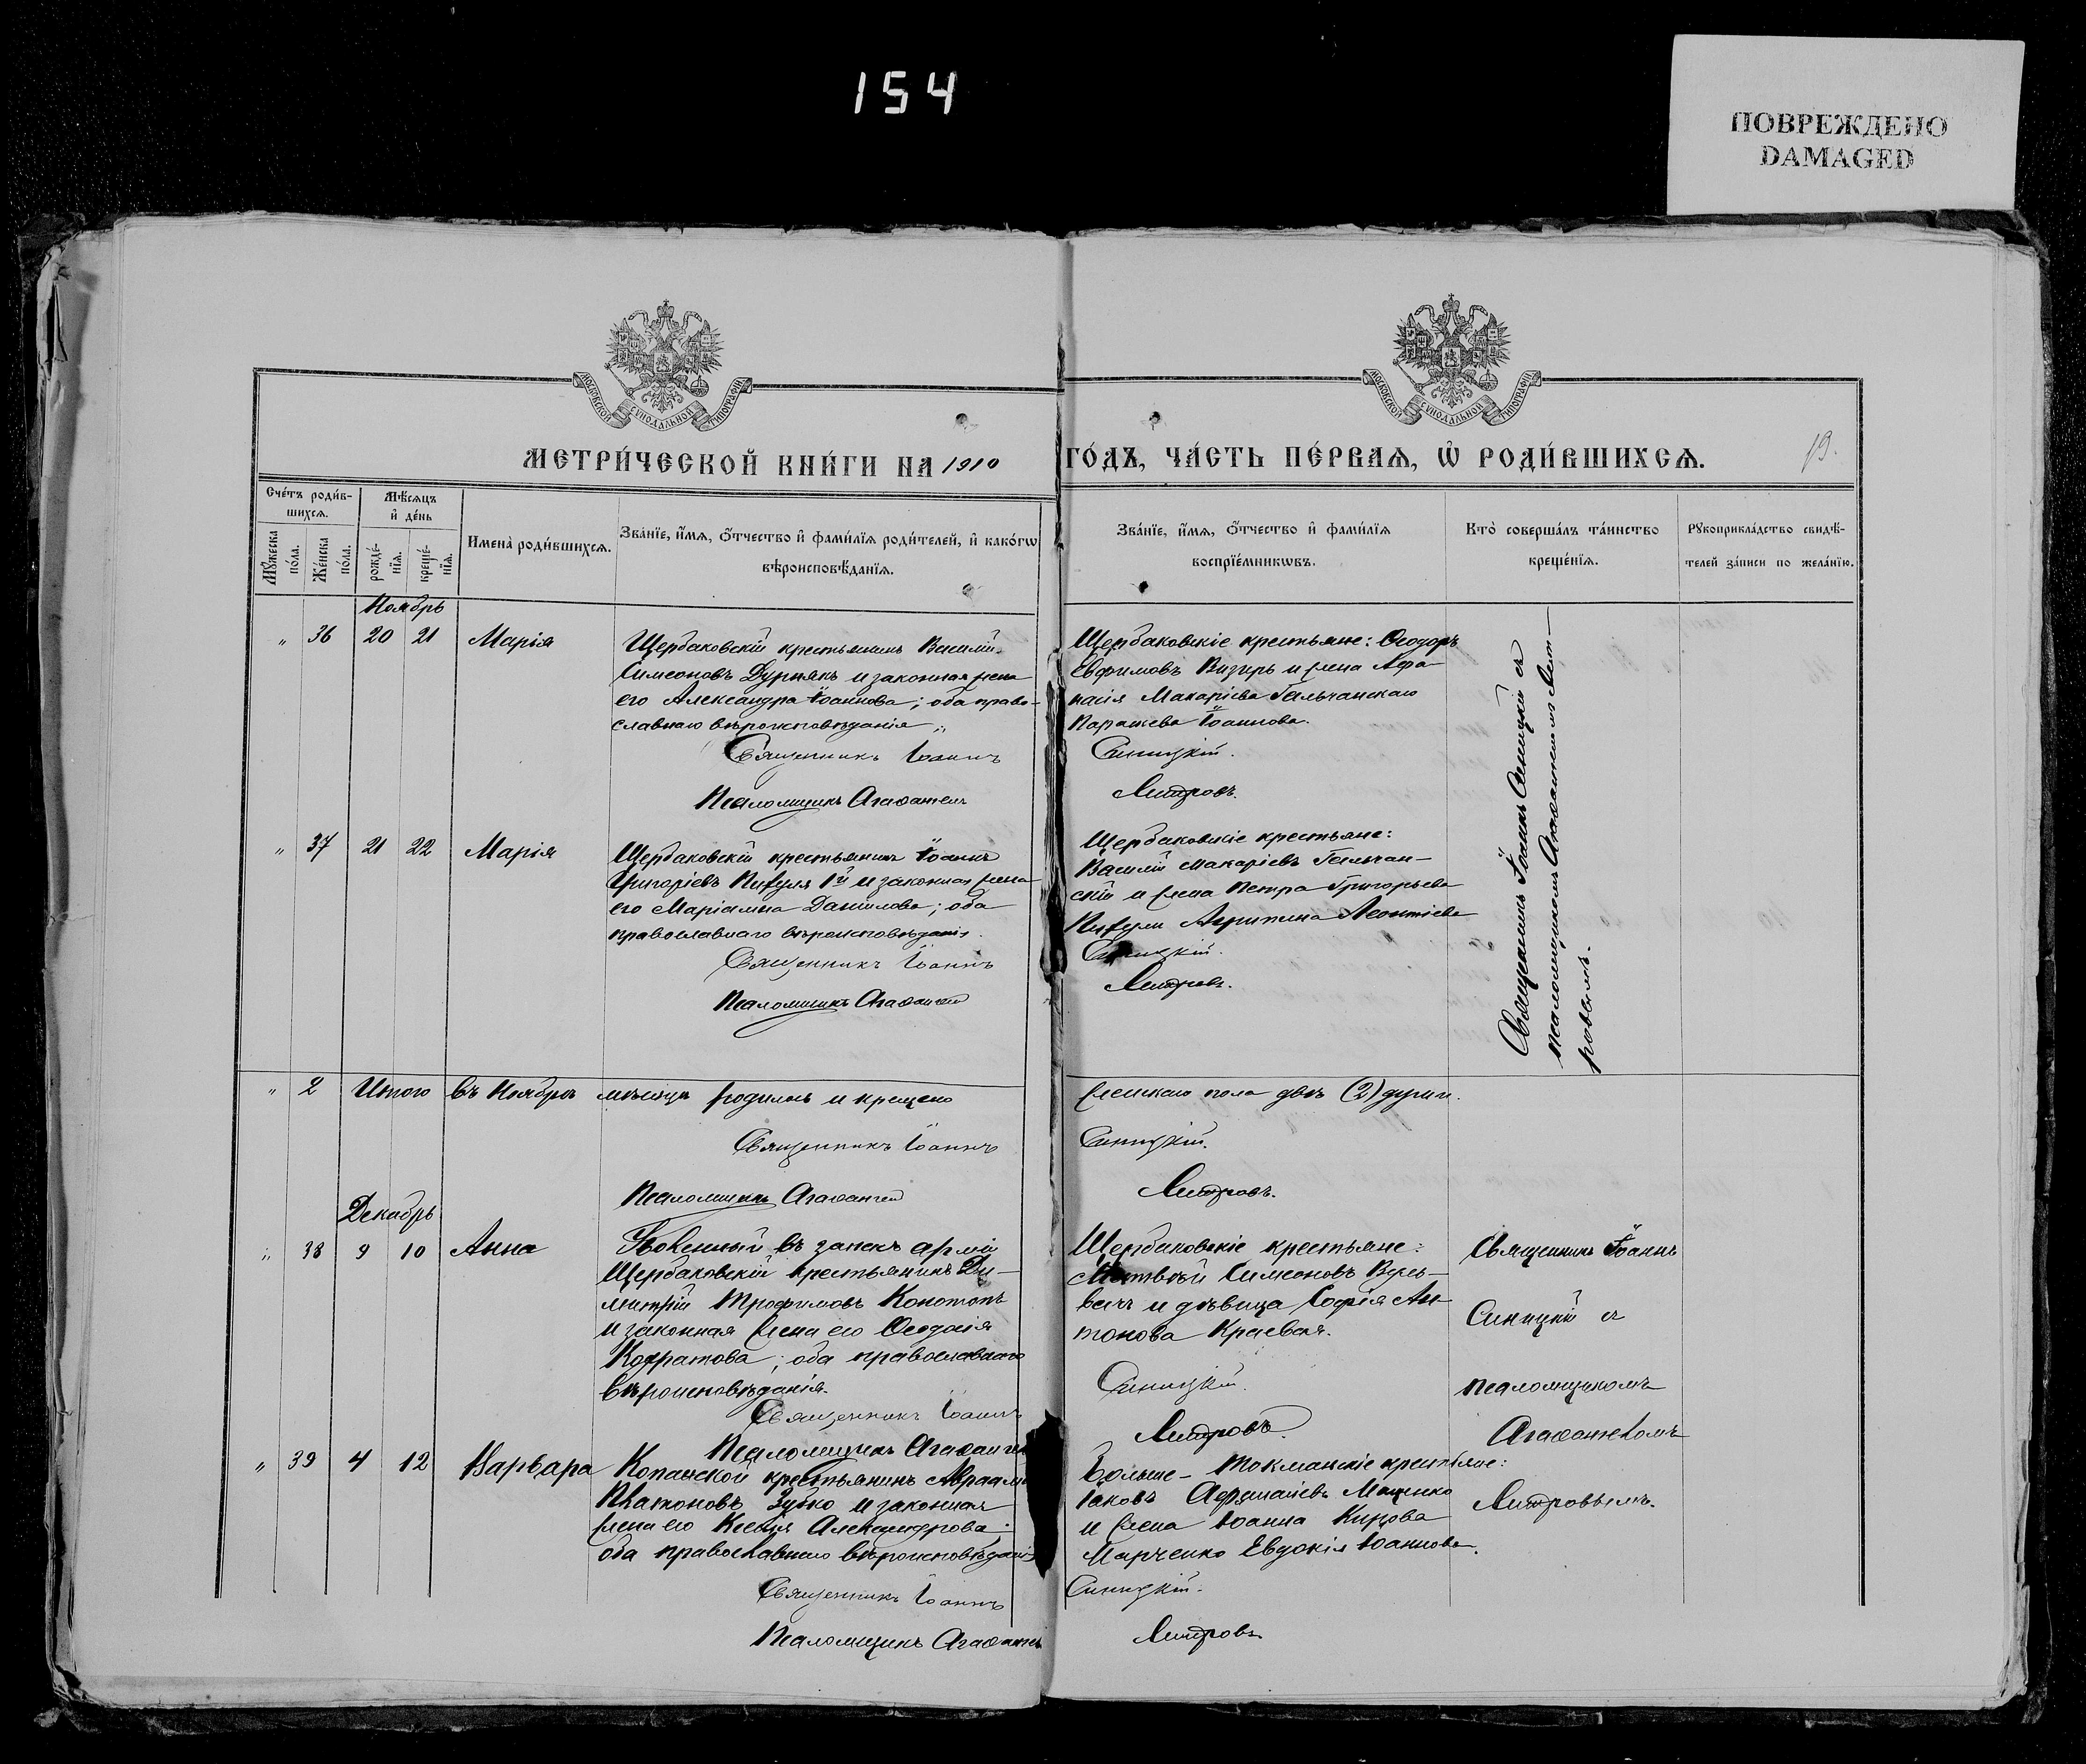 154
ПОВРЕЖДЕНО
DAMAGED
МОСКОВСКОЙ СѴНОДАЛЬНОЙ ТИПОГРАФІИ
МОСКОВСКОЙ СѴНОДАЛЬНОЙ ТИПОГРАФІИ
МЕТРИ́ЧЕСКОЙ КНИ́ГИ НА 1910
ГО́ДЪ, ЧА́СТЬ ПЕ́РВАѦ, Ѡ҆ РОДИ́ВШИХСѦ.
19.
Сче́тъ роди́в-
шихсѧ.
Мѣ́сѧцъ
и҆ де́нь
Мꙋ́жеска
по́ла.
Же́нска
по́ла.
рожде́-
нїѧ.
креще́-
нїѧ.
Имена̀ роди́вшихсѧ.
Зва́нїе, и҆́мѧ, ѻ҆́тчество и҆ фами́лїѧ роди́телей, и҆ како́гѡ
вѣроисповѣ́данїѧ.
Зва́нїе, и҆́мѧ, ѻ҆́тчество и҆ фами́лїѧ
воспрїе́мникѡвъ.
Кто̀ соверша́лъ та́инство
креще́нїѧ.
Рꙋкоприкла́дство свидѣ́-
телей за́писи по жела́нїю.
Ноябрь
„ 36 20 21 Марія
Щербаковскій крестьянинъ Василій
Симеоновъ Дурнякъ и законная жена
его Александра Іоаннова; оба право-
славнаго вѣроисповѣданія.
Священникъ Іоаннъ
Псаломщикъ Агаѳангелъ
Щербаковскіе крестьяне: Ѳеодоръ
Евфимовъ Визирь и жена Афа-
насія Макаріева Гальчанскаго
Параскева Іоаннова.
Синицкій.
Лит­ровъ.
Священникъ Іоаннъ Синицкій съ
псаломщикомъ Агаѳангеломъ Лит-
ровымъ.
„ 37 21 22 Марія
Щербаковскій крестьянинъ Іоаннъ
Григоріевъ Пивуля 1й и законная жена
его Маріамна Даниилова; оба
православнаго вѣроисповѣданія.
Священникъ Іоаннъ
Псаломщикъ Агаѳангелъ
Щербаковскіе крестьяне:
Василій Макаріевъ Гальчан-
скій и жена Петра Григорьева
Пивули Агрипина Леонтіева
Синицкій.
Литровъ.
„ 2 Итого въ Ноябрѣ мѣсяцѣ родилось и крещено
женскаго пола двѣ (2) души.
Священникъ Іоаннъ
Синицкій.
Псаломщикъ Агаѳангелъ
Литровъ.
Декабрь
„ 38 9 10 Анна
Уволенный въ запасъ арміи
Щербаковскій крестьянинъ Ди-
митрій Трофимовъ Конотопъ
и законная жена его Ѳеодосія
Кодратова; оба православнаго
вѣроисповѣданія.
Священникъ Іоаннъ
Псаломщикъ Агаѳангелъ
Щербаковскіе крестьяне:
Матвѣй Симеоновъ
и дѣвица Софія Ан-
тонова Краевская.
Синицкій.
Литровъ.
Священникъ Іоаннъ
Синицкій съ
псаломщикомъ
Агаѳангеломъ
Литровымъ.
„ 39 4 12 Варвара
Копанской крестьянинъ Авраамъ
Платоновъ Зубко и законная
жена его Ксенія Александрова;
оба православнаго вѣроисповѣданія
Священникъ Іоаннъ
Псаломщикъ Агаѳангелъ
Больше-Токмакскіе крестьяне:
Іаковъ Афанасіевъ Маценко
и жена Іоанна Кирова
Марченко Евдокія Іоаннова.
Синицкій.
Литровъ.